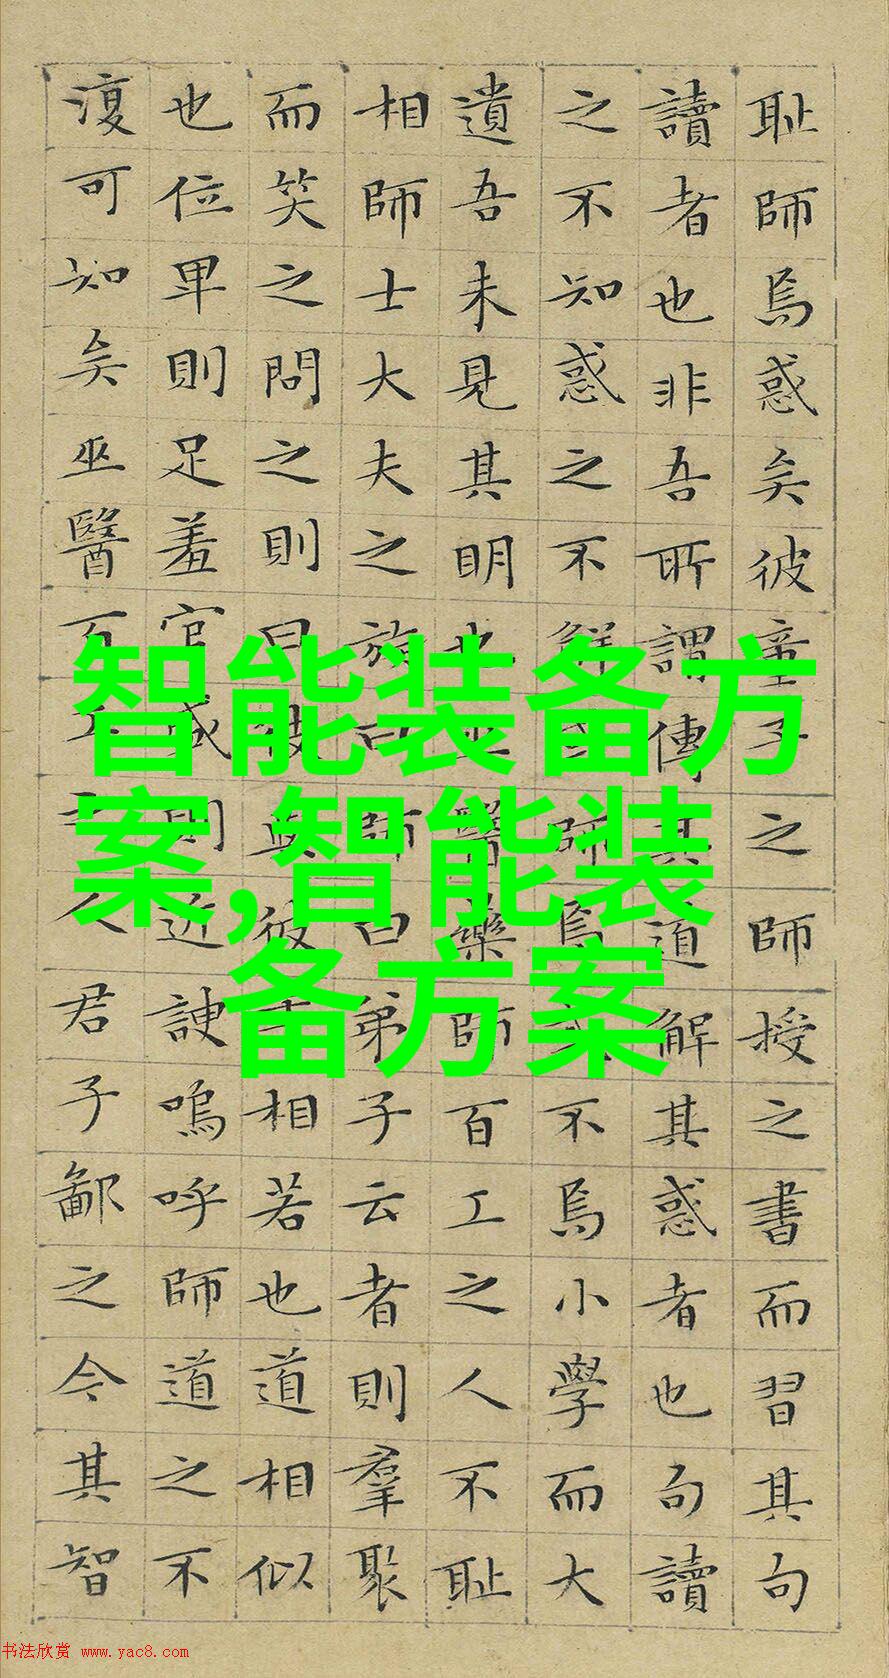 耻師焉惑矣彼童子之師授之書而習其句
讀者也非吾所謂傳其道解其惑者也句讀
之不知惑之不解或師焉或不焉小學而大
遺吾未見其明也巫醫藥師百工之人不耻
相師士大夫之族曰師曰弟子云者則羣聚
而笑之問之則曰彼與彼年相若也道相似
也位卑則足羞官盛則近諛嗚呼師道之不
復可知矣巫醫百工之人君子鄙之今其智
智能装备方
案,智能装
备方案
书法欣赏 www.yac8.com